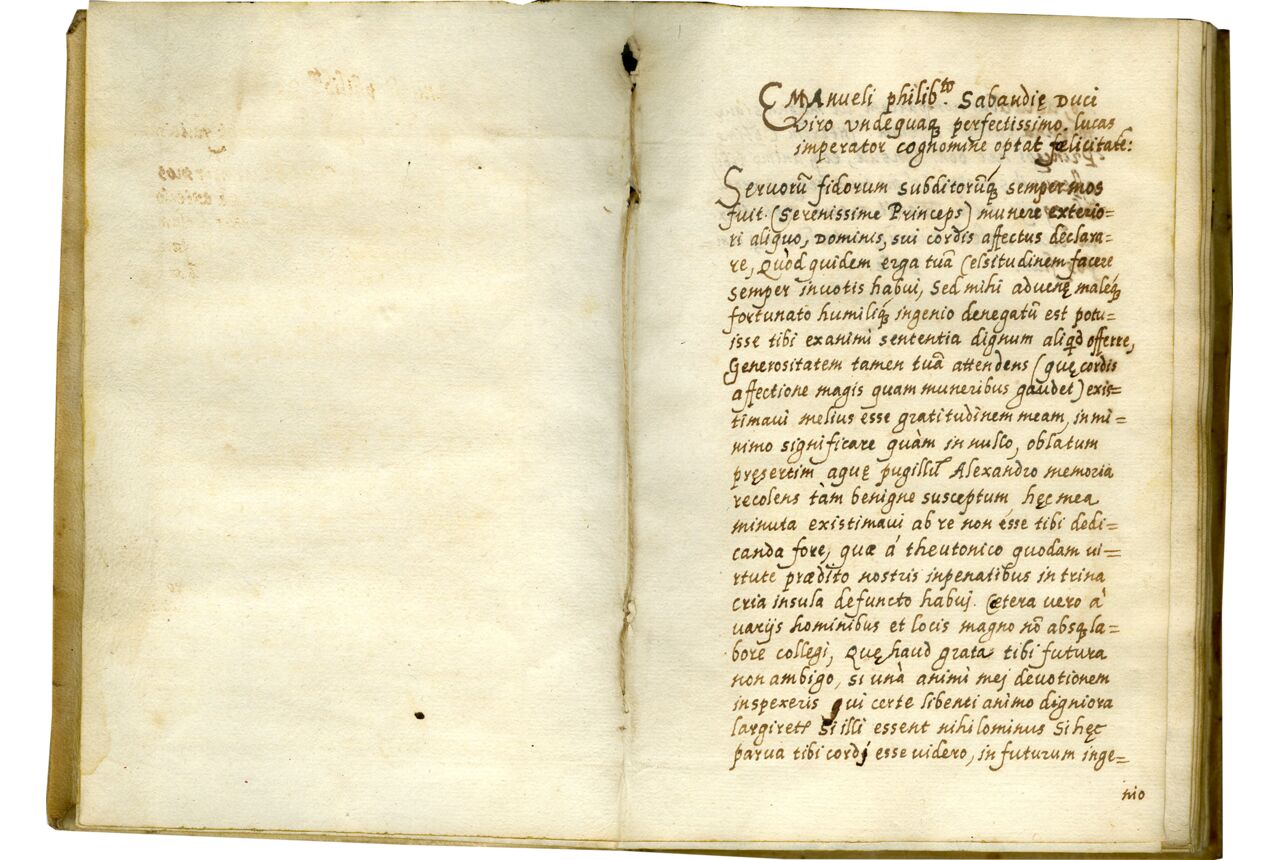 EMANueli philib.to Sabaudię Duci
viro vndequaq; perfectissimo. lucas
imperator cognomine optat fęlicitatē:
Seruorū fidorum subditorūq; semper mos
fuit. (Serenissime Princeps) munere exterio=
ri aliquo, Dominis, sui cordis affectus declara=
re, Quòd quidem erga tuā Celsitudinem facere
semper inuotis habui, Sed mihi aduenę maleq;
fortunato humiliq; ingenio denegatū est potu=
isse tibi exanimi sententia dignum aliqd offerre,
Generositatem tamen tuā attendens (quę cordis
affectione magis quam muneribus gaudet) exis=
timaui melius esse gratitudinem meam, in mi=
nimo significare quàm in nullo, oblatum
pręsertim aquę pugillū Alexandro memoria
recolens tàm benigne susceptum hęc mea
minuta existimaui ab re non esse tibi dedi=
canda fore, quæ á theutonico quodam ui=
rtute prædito nostris inpenatibus in trina
cria insula defuncto habuj. Cætera uero à
uarijs hominibus et locis magno nō absq; la=
bore collegi, Quę haud grata tibi futura
non ambigo, si unà animi mej deuotionem
inspexeris qui certe libenti animo digniora
largiret si illi essent nihilominus Si hęc
parua tibi cordj esse uidero, in futurum inge=
nio